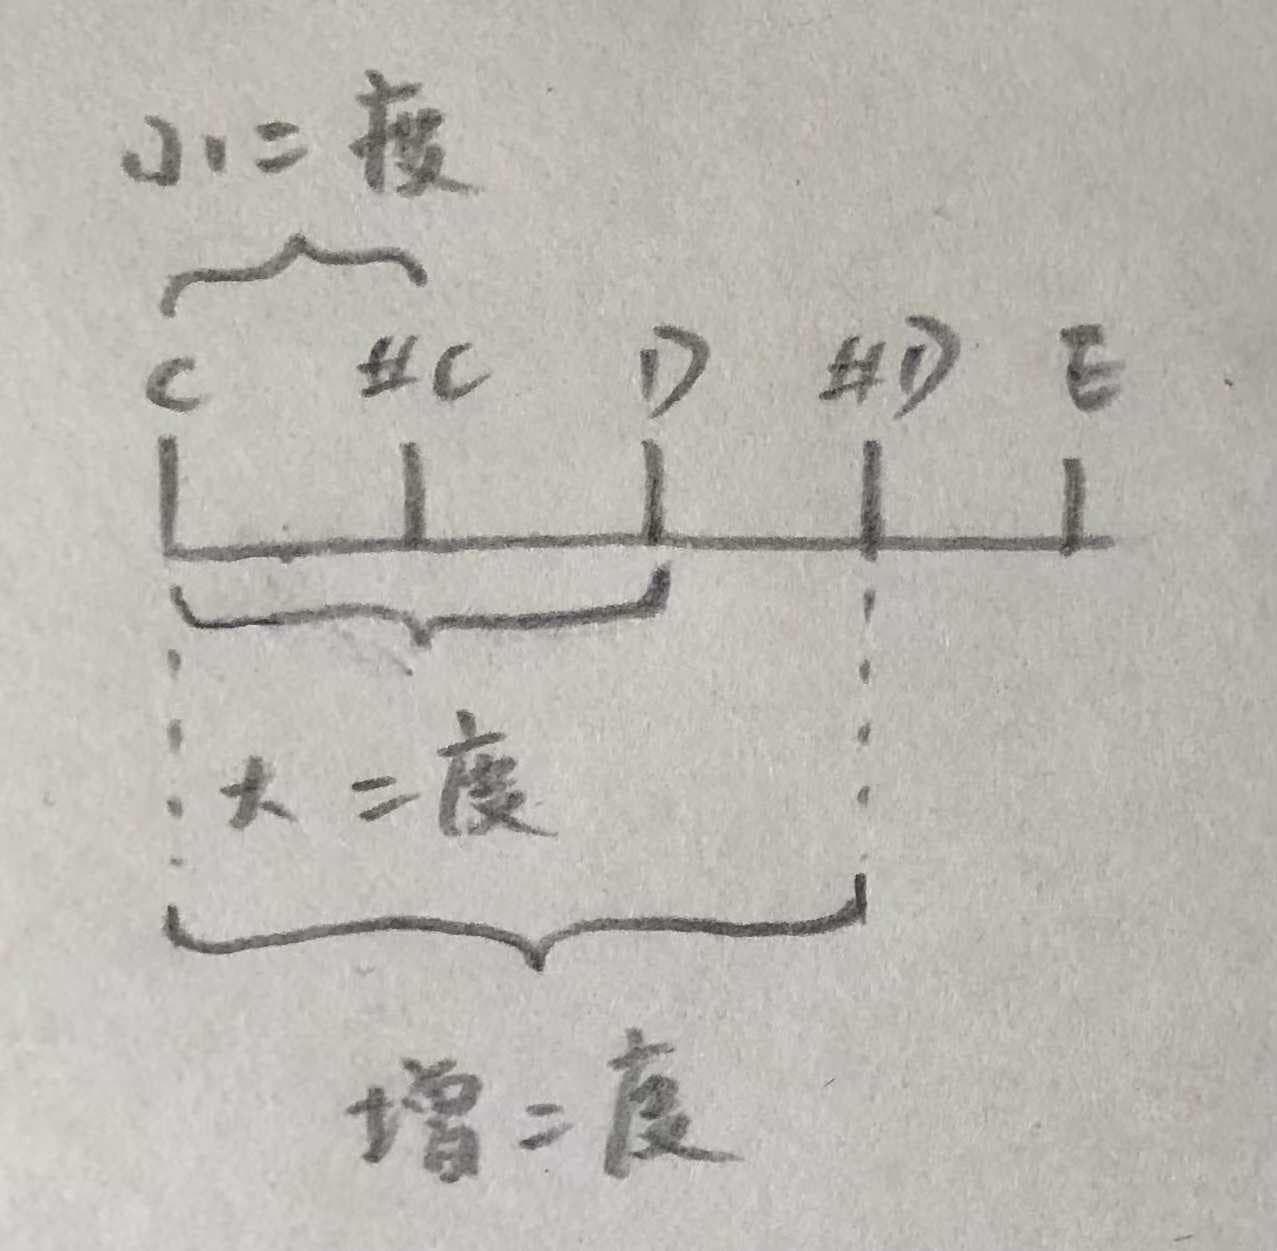 小二度
C #C D #D E
大二度
增二度